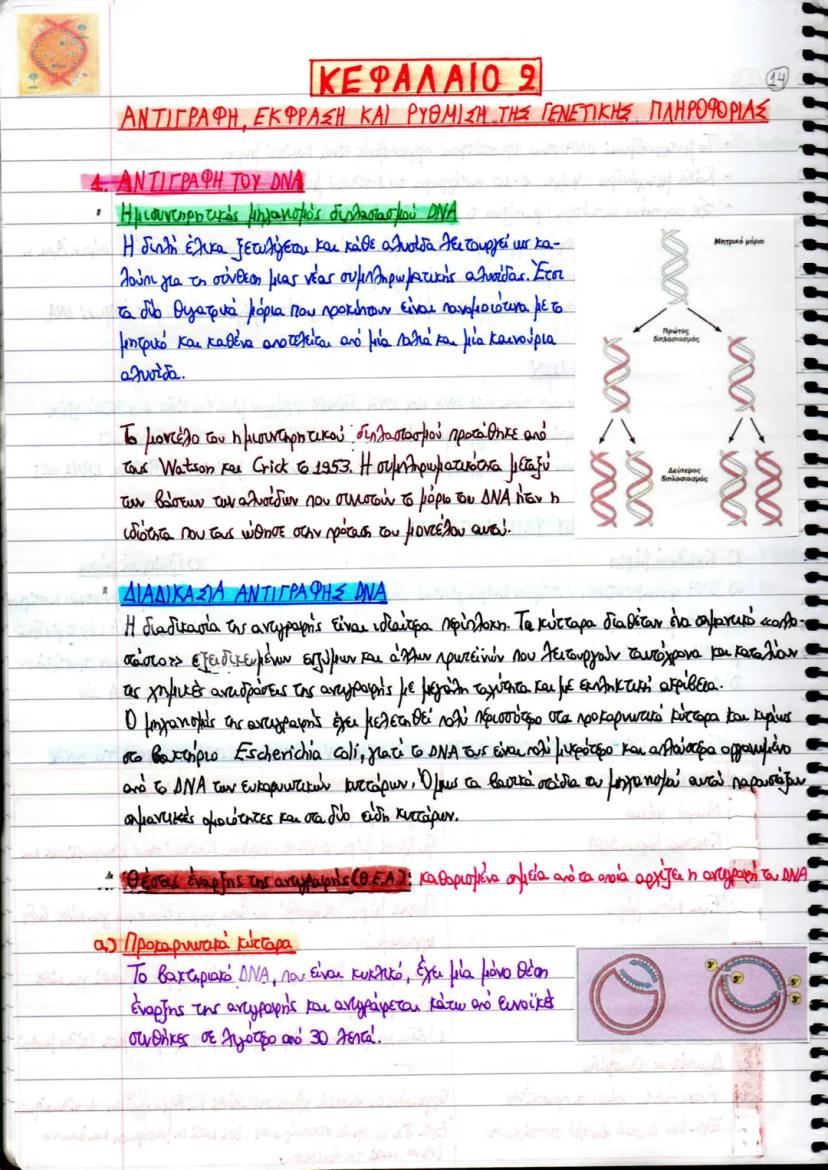 14
ΚΕΦΑΛΑΙΟ 2
ΑΝΤΙΓΡΑΦΗ, ΕΚΦΡΑΣΗ ΚΑΙ ΡΥΘΜΙΣΗ ΤΗΣ ΓΕΝΕΤΙΚΗΣ ΠΛΗΡΟΦΟΡΙΑΣ
1. ΑΝΤΙΓΡΑΦΗ ΤΟΥ DNA
Ημισυντηρητικός μηχανισμός διπλασιασμού DNA
Η διπλή έλικα ξετυλίγεται και κάθε αλυσίδα λειτουργεί ως κα-
λούπι για τη σύνθεση μιας νέας συμπληρωματικής αλυσίδας. Έτσι
τα δύο θυγατρικά μόρια που προκύπτουν είναι πανομοιότυπα με το
μητρικό και καθένα αποτελείται από μία παλιά και μία καινούρια
αλυσίδα.
Μητρικό μόριο
Πρώτος
διπλασιασμός
Δεύτερος
διπλασιασμός
Το μοντέλο του ημισυντηρητικού διπλασιασμού προτάθηκε από
τους Watson και Crick το 1953. Η συμπληρωματικότητα μεταξύ
των βάσεων των αλυσίδων που συνιστούν το μόριο του DNA ήταν η
ιδιότητα που τους ώθησε στην πρόταση του μοντέλου αυτού.
ΔΙΑΔΙΚΑΣΙΑ ΑΝΤΙΓΡΑΦΗΣ DNA
Η διαδικασία της αντιγραφής είναι ιδιαίτερα περίπλοκη. Τα κύτταρα διαθέτουν ένα σημαντικό «οπλο-
στάσιο» εξειδικευμένων ενζύμων και άλλων πρωτεϊνών που λειτουργούν ταυτόχρονα και καταλύουν
τις χημικές αντιδράσεις της αντιγραφής με μεγάλη ταχύτητα και με εκπληκτική ακρίβεια.
Ο μηχανισμός της αντιγραφής έχει μελετηθεί πολύ περισσότερο στα προκαρυωτικά κύτταρα και κυρίως
στο βακτήριο Escherichia coli, γιατί το DNA τους είναι πολύ μικρότερο και απλούστερα οργανωμένο
από το DNA των ευκαρυωτικών κυττάρων. Όμως τα βασικά στάδια του μηχανισμού αυτού παρουσιάζουν
σημαντικές ομοιότητες και στα δύο είδη κυττάρων.
Θέσεις έναρξης της αντιγραφής (Θ.Ε.Α.): καθορισμένα σημεία από τα οποία αρχίζει η αντιγραφή του DNA
α) Προκαρυωτικά κύτταρα
Το βακτηριακό DNA, που είναι κυκλικό, έχει μία μόνο θέση
έναρξης της αντιγραφής και αντιγράφεται κάτω από ευνοϊκές
συνθήκες σε λιγότερο από 30 λεπτά.